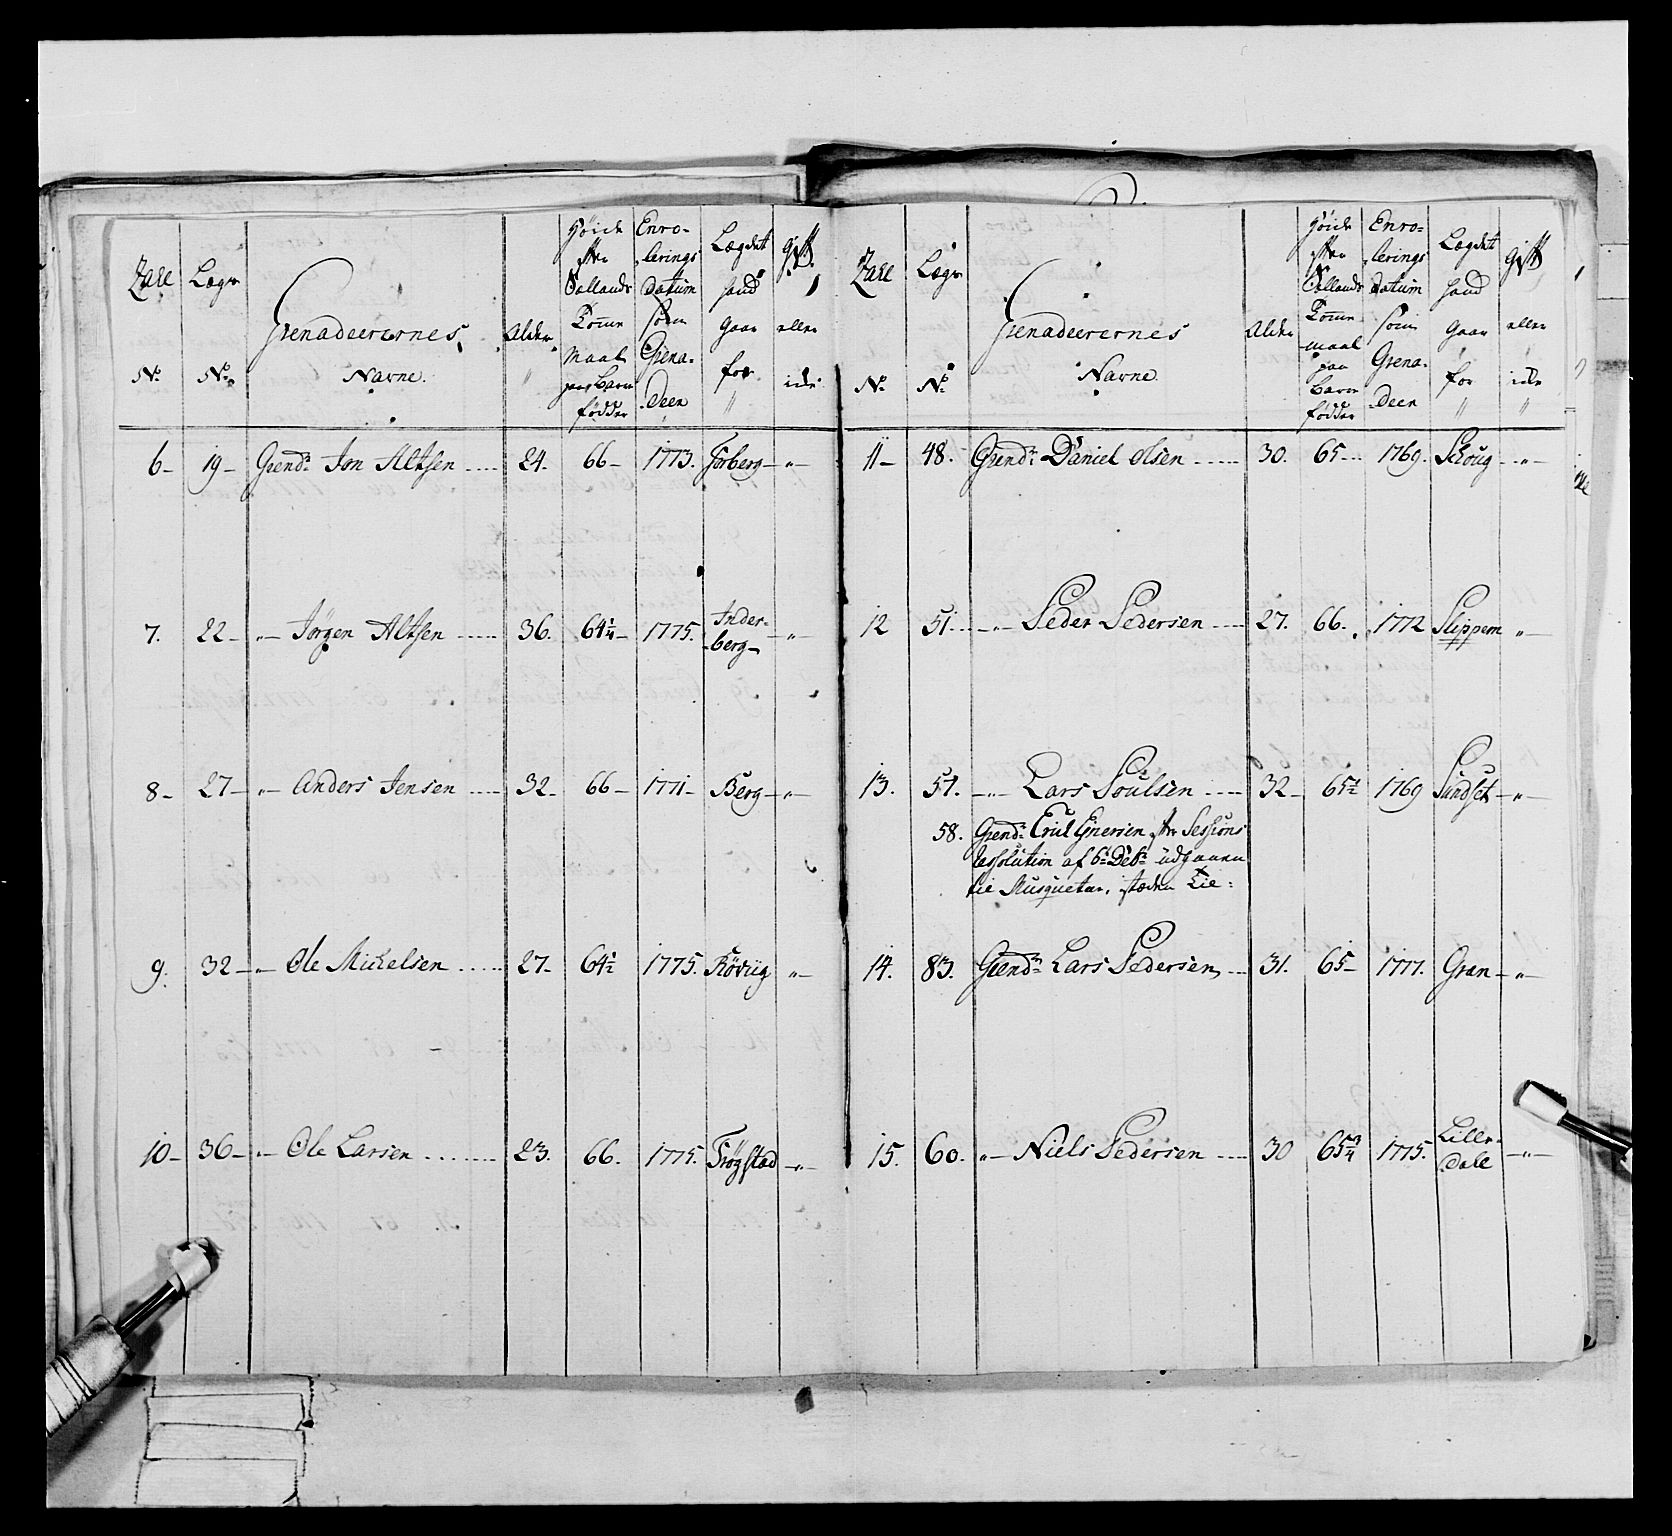 Tall N:
Lægs N:
Grenadeerernes Navne.
Alder
Høide efter Sallands Tomme maal paa Barn fødder
Enro-
lerings
Datum
som
Grena-
deer
Lægdet
hand
gaar
for
Gift
eller
icke
6- 19- Grendr Jon Altsen ..... 24. 66- 1773. Forberg - " -
7. 22- " - Jörgen Altsen ..... 36. 64¼- 1775. Inder-
berg - " -
8- 27- " - Anders Jensen ..... 32- 66- 1771- Berg - " -
9. 32- " - Ole Mickelsen ..... 27- 64½ 1775. Rövüg " -
10- 36- " - Ole Larsen ..... 23. 66. 1775. Frögstad - " -
Tall N:
Lægs N:
Grenadeerernes
Navne
Alder
Høide
efter
Sallands
Tomme
maal
paa
Barn
fødder
Enro-
lerings
Datum
som
Grena-
deer
Lægdet
hand
gaar
for
Gift
eller
icke
11- 48. Grendr Daniel Olsen ..... 30. 65... 1769. Schoug - " -
12 51.... - " - Peder Pedersen .... 27. 66. 1772 Slippem " -
13. 54. - " - Lars Poulsen ..... 32- 65½ 1769 Sundset - " -
58. Grendr Eril Gnersen, efter Sessions
Resolution af 6te Debr udgaaen
til Musqueteer, stæden Lie:
14. 83. Grendr Lars Pedersen, ... 31. 65- 1777. Gran - " -
15. 60. " - Niels Pedersen .... 30 65¾ 1775. Lille-
dale - " -